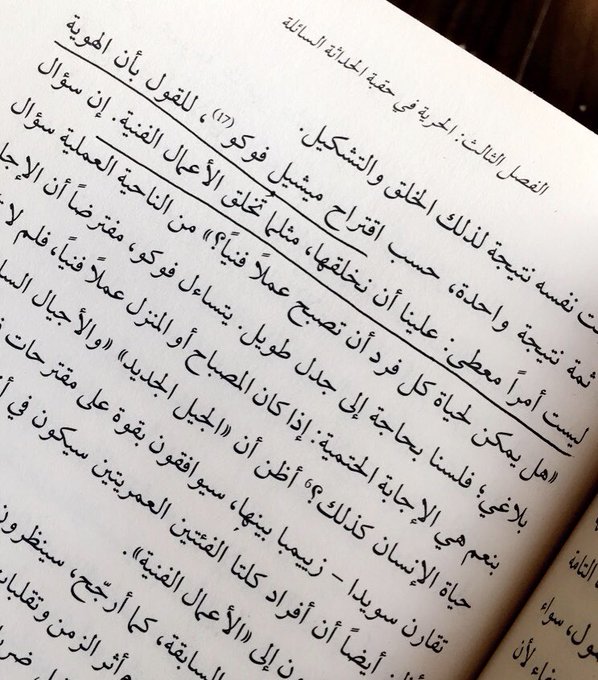 الفصل الثالث: الحرية في حقبة الحداثة السائلة
نفسه نتيجة لذلك الخلق والتشكيل.
ثمة نتيجة واحدة، حسب اقتراح ميشيل فوكو(17)، للقول بأن الهوية
ليست أمراً معطى: علينا أن نخلقها، مثلما تُخلق الأعمال الفنية. إن سؤال
«هل يمكن لحياة كل فرد أن تصبح عملاً فنياً؟» من الناحية العملية سؤال
بلاغي؛ فلسنا بحاجة إلى جدل طويل. يتساءل فوكو، مفترضاً أن
بنعم هي الإجابة الحتمية: إذا كان المصباح أو المنزل عملاً فنياً، فلم لا
حياة الإنسان كذلك؟ أظن أن «الجيل الجديد» «والأجيال
تقارن سويدا - زييمبا بينها، سيوافقون بقوة على مقترحات
أيضاً أن أفراد كلتا الفئتين العمريتين سيكون في
إلى «الأعمال الفنية».
السابقة، كما أرجّح، سينظرون
أثر الزمن وتقلبات
التامة
سواء
لأن